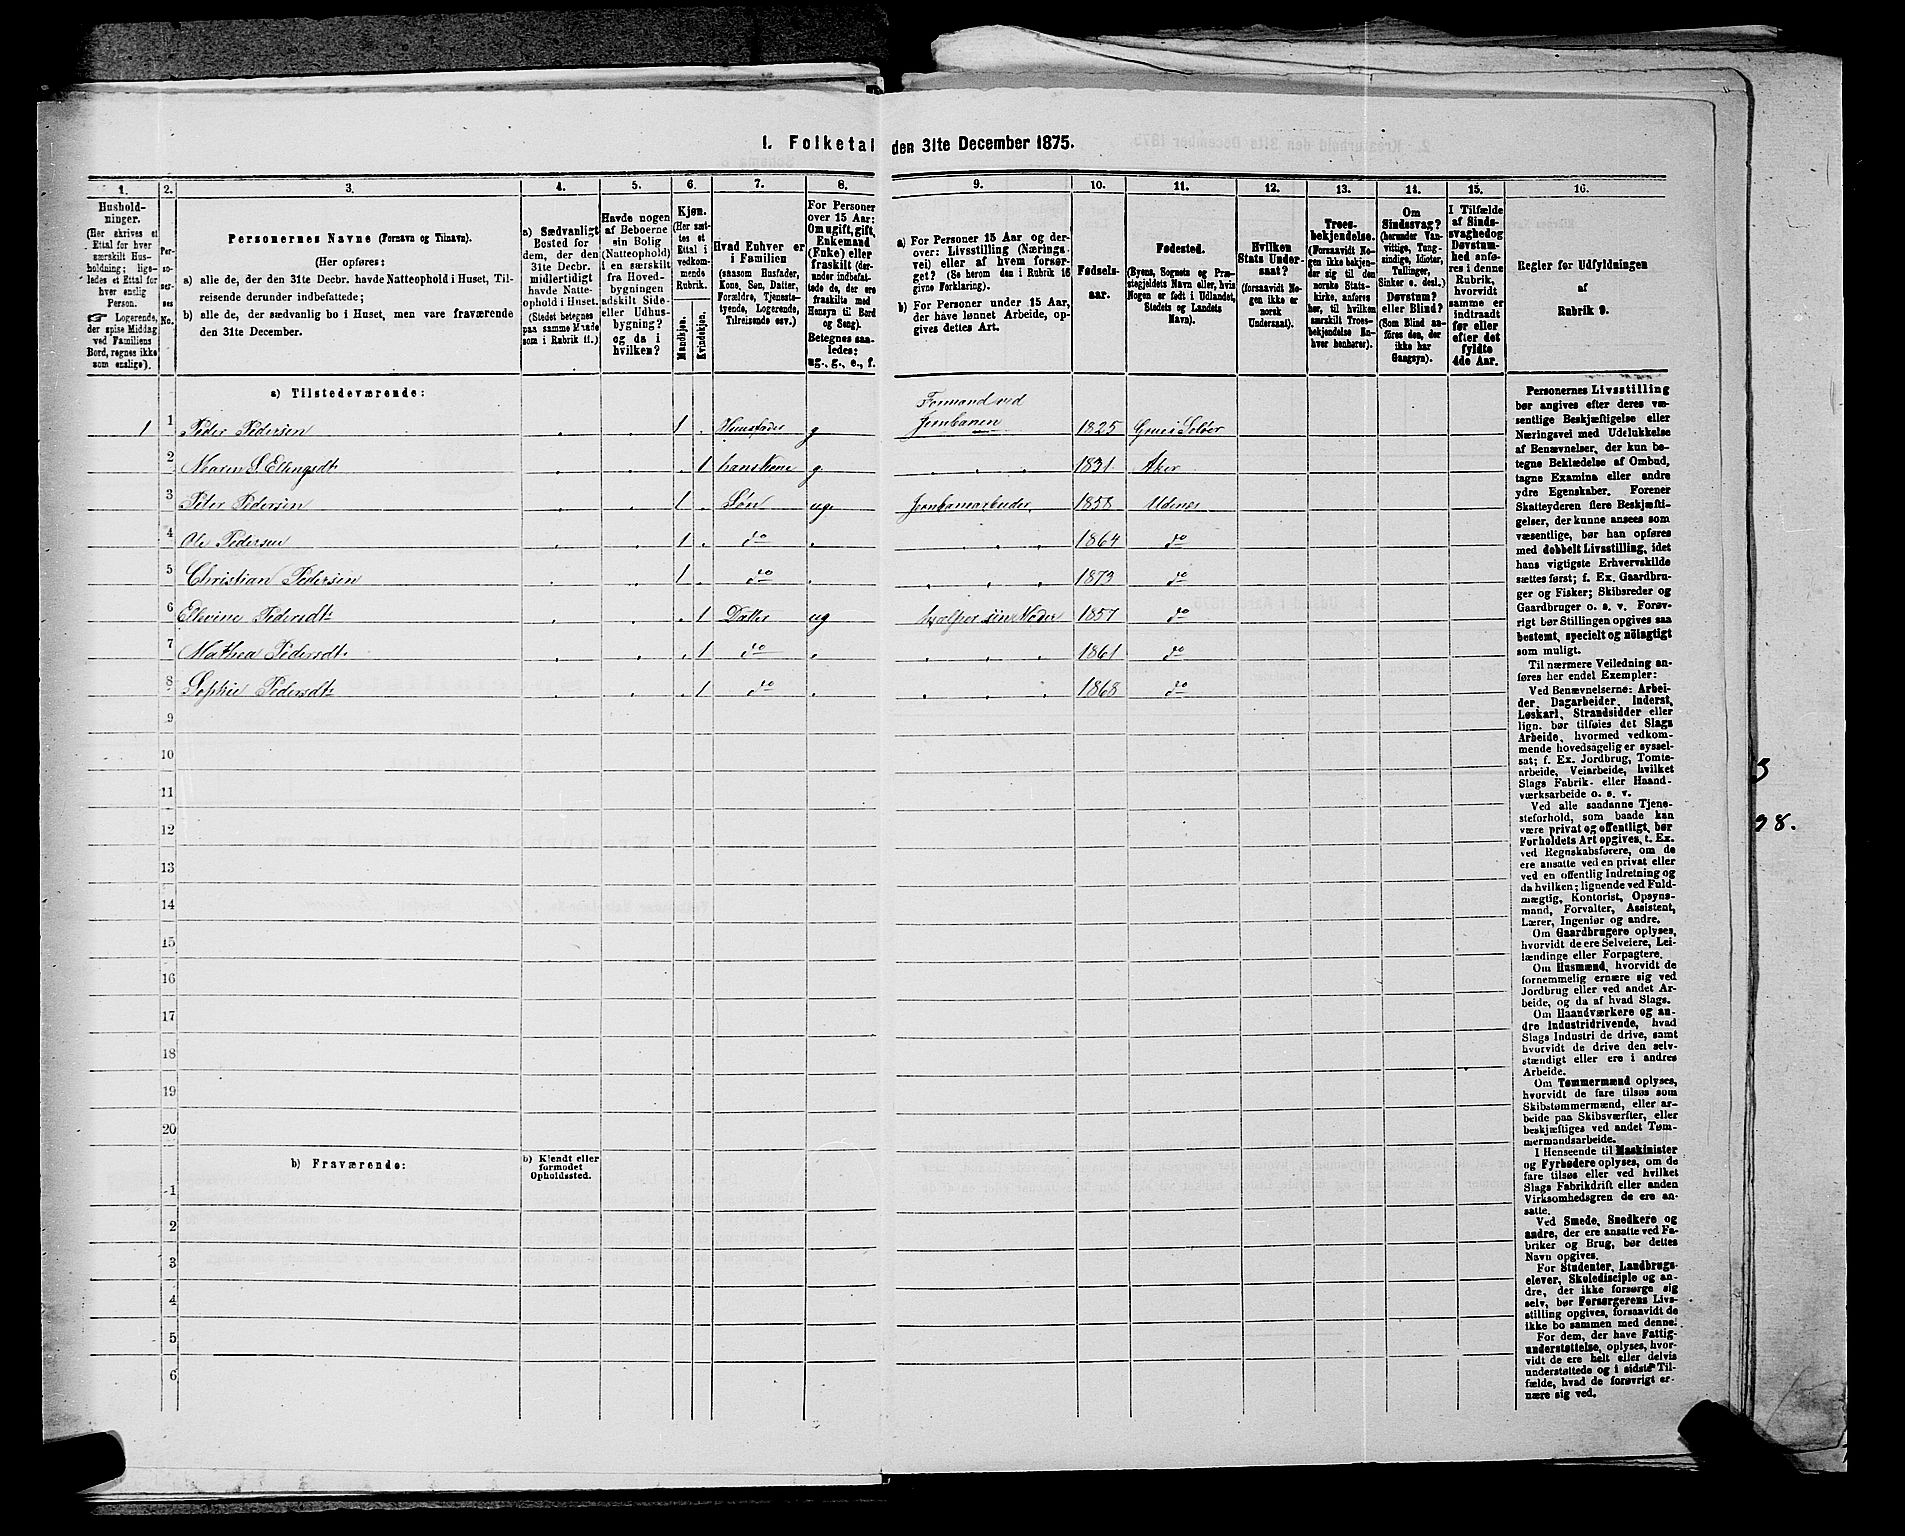 1. Folketal den 31te December 1875.
1. 2. 3. 4. 5. 6. 7. 8. 9. 10. 11. 12. 13. 14. 15. 16.
Hushold-
ninger.
(Her skrives et
Ettal for hver
særskilt Hus-
holdning; lige-
ledes et Ettal for
hver enslig
Person.
☞ Logerende,
der spise Middag
ved Familiens
Bord, regnes ikke
som enslige).
Per-
so-
ner-
nes
No.
Personernes Navne (Fornavn og Tilnavn).
(Her opføres:
a) alle de, der den 31te Decbr. havde Natteophold i Huset, Til-
reisende derunder indbefattede;
b) alle de, der sædvanlig bo i Huset, men vare fraværende
den 31te December.
a) Sædvanligt
Bosted for
dem, der den
31te Decbr.
midlertidigt
havde Natte-
ophold i Huset.
(Stedet betegnes
paa samme Maade
som i Rubrik 11.)
Havde nogen
af Beboerne
sin Bolig
(Natteophold)
i en særskilt
fra Hoved-
bygningen
adskilt Side-
eller Udhus-
bygning?
og da i
hvilken?
Kjøn.
(Her sæt-
tes et
Ettal i
vedkom-
mende
Rubrik.
Mandkjøn.
Kvindekjøn.
Hvad Enhver er
i Familien
(saasom Husfader,
Kone, Søn, Datter,
Forældre, Tjeneste-
tyende, Logerende,
Tilreisende osv.)
For Personer
over 15 Aar:
Om ugift, gift,
Enkemand
(Enke) eller
fraskilt (der-
under indbefat-
tede de, der ere
fraskilte med
Hensyn til Bord
og Seng).
Betegnes saa-
ledes:
ug., g., e., f.
a) For Personer 15 Aar og der-
over: Livsstilling (Nærings-
vei) eller af hvem forsør-
get? (Se herom den i Rubrik 16
givne Forklaring).
b) For Personer under 15 Aar,
der have lønnet Arbeide, op-
gives dettes Art.
Fødsels-
aar.
Fødested.
(Byens, Sognets og Præ-
stegjeldets Navn eller, hvis
Nogen er født i Udlandet,
Stedets og Landets
Navn).
Hvilken
Stats Under-
saat?
(forsaavidt No-
gen ikke er
norsk
Undersaat).
Troes-
bekjendelse.
(Forsaavidt No-
gen ikke bekjen-
der sig til den
norske Stats-
kirke, anføres
her, til hvilken
særskilt Troes-
bekjendelse En-
hver henhører).
Om
Sindssvag?
(herunder Van-
vittige, Tung-
sindige, Idioter,
Tullinger,
Sinker o. desl.)
Døvstum?
eller Blind?
(Som Blind an-
føres den, der
ikke har
Gangsyn).
I Tilfælde
af Sinds-
svaghed og
Døvstum-
hed anfø-
res i denne
Rubrik,
hvorvidt
samme er
indtraadt
før eller
efter det
fyldte
4de Aar.
Regler for Udfyldningen
af
Rubrik 9.
a) Tilstedeværende:
Formand ved
1 1 Peder Pedersen 1 Huusfader g Jernbanen 1825 Grue i Soløer
2 Maren S. Ellingsdt: 1 hans Kone g 1831 Aker
3 Peter Pedersen 1 Søn ug. Jernbanearbeider 1858 Udenes
4 Ole Pedersen 1 do 1864 do
5 Christian Pedersen 1 do 1873 do
6 Elevine Pedersdt: 1 Datter ug hjælper sin Moder 1857 do
7 Mathea Pedersdt: 1 do 1861 do
8 Sophie Pedersdt: 1 do 1868 do
9
10
11
12
13
14
15
16
17
18
19
20
b) Fraværende: b) Kjendt eller
formodet
Opholdssted.
1
2
3
4
5
6
Personernes Livsstilling
bør angives efter deres væ-
sentlige Beskjæftigelse eller
Næringsvei med Udelukkelse
af Benævnelser, der kun be-
tegne Beklædelse af Ombud,
tagne Examina eller andre
ydre Egenskaber. Forener
Skatteyderen flere Beskjæfti-
gelser, der kunne ansees som
væsentlige, bør han opføres
med dobbelt Livsstilling, idet
hans vigtigste Erhvervskilde
sættes først; f. Ex. Gaardbru-
ger og Fisker; Skibsreder og
Gaardbruger o. s. v. Forøv-
rigt bør Stillingen opgives saa
bestemt, specielt og nöiagtigt
som muligt.
Til nærmere Veiledning an-
føres her endel Exempler:
Ved Benævnelserne: Arbei-
der, Dagarbeider, Inderst,
Løskarl, Strandsidder eller
lign. bør tilføies det Slags
Arbeide, hvormed vedkom-
mende hovedsagelig er syssel-
sat; f. Ex. Jordbrug, Tomte-
arbeide, Veiarbeide, hvilket
Slags Fabrik- eller Haand-
værksarbeide o. s. v.
Ved alle saadanne Tjene-
steforhold, som baade kan
være privat og offentligt, bør
Forholdets Art opgives, t. Ex.
ved Regnskabsførere, om de
ere ansatte ved en privat eller
ved en offentlig Indretning og
da hvilken; lignende ved Fuld-
mægtig, Kontorist, Opsyns-
mand, Forvalter, Assistent,
Lærer, Ingeniør og andre.
Om Gaardbrugere oplyses,
hvorvidt de ere Selveiere, Lei-
lændinge eller Forpagtere.
Om Husmænd, hvorvidt de
fornemmelig ernære sig ved
Jordbrug eller ved andet Ar-
beide, og da af hvad Slags.
Om Haandværkere og an-
dre Industridrivende, hvad
Slags Industri de drive, samt
hvorvidt de drive den selv-
stændigt eller ere i andres
Arbeide.
Om Tømmermænd oplyses,
hvorvidt de fare tilsøs som
Skibstømmermænd, eller ar-
beide paa Skibsværfter, eller
beskjæftiges ved andet Tøm-
mermandsarbeide.
I Henseende til Maskinister
og Fyrbødere oplyses, om de
fare tilsøs eller ved hvilket
Slags Fabrikdrift eller anden
Virksomhedsgren de ere an-
satte.
Ved Smede, Snedkere og
andre, der ere ansatte ved Fa-
briker og Brug, bør dettes
Navn opgives.
For Studenter, Landbrugs-
elever, Skoledisciple og an-
dre, der ikke forsørge sig
selv, bør Forsørgerens Livs-
stilling opgives, forsaavidt de
ikke bo sammen med denne.
For dem, der have Fattig-
understøttelse, oplyses, hvor-
vidt de ere helt eller delvis
understøttede og i sidste Til-
fælde, hvad de forøvrigt er-
nære sig ved.